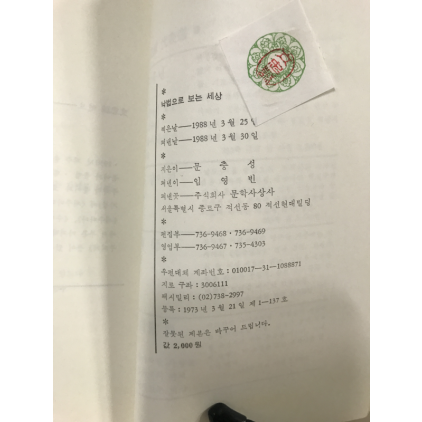 *
넋법으로 보는 세상
*
찍은날——1988년 3월 25일
펴낸날——1988년 3월 30일
*
지은이——문 충 성
펴낸이——임 영 빈
펴낸곳——주식회사 문학사상사
서울특별시 종로구 적선동 80 적선현대빌딩
*
편집부——736-9468·736-9469
영업부——736-9467·735-4303
*
우편대체 계좌번호 : 010017-31-1088871
지로 구좌 : 3006111
팩시밀리 : (02)738-2997
등록 : 1973년 3월 21일 제1-137호
*
잘못된 책은 바꾸어 드립니다.
값 2,000원